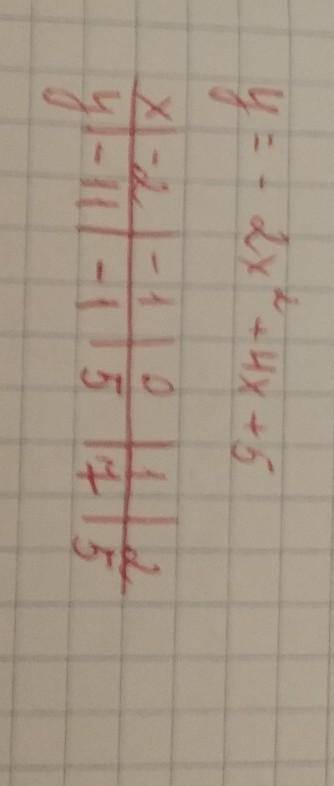 y = - 2x² + 4x + 5
x | -2 | -1 | 0 | 1 | 2
y | -11 | -1 | 5 | 7 | 5